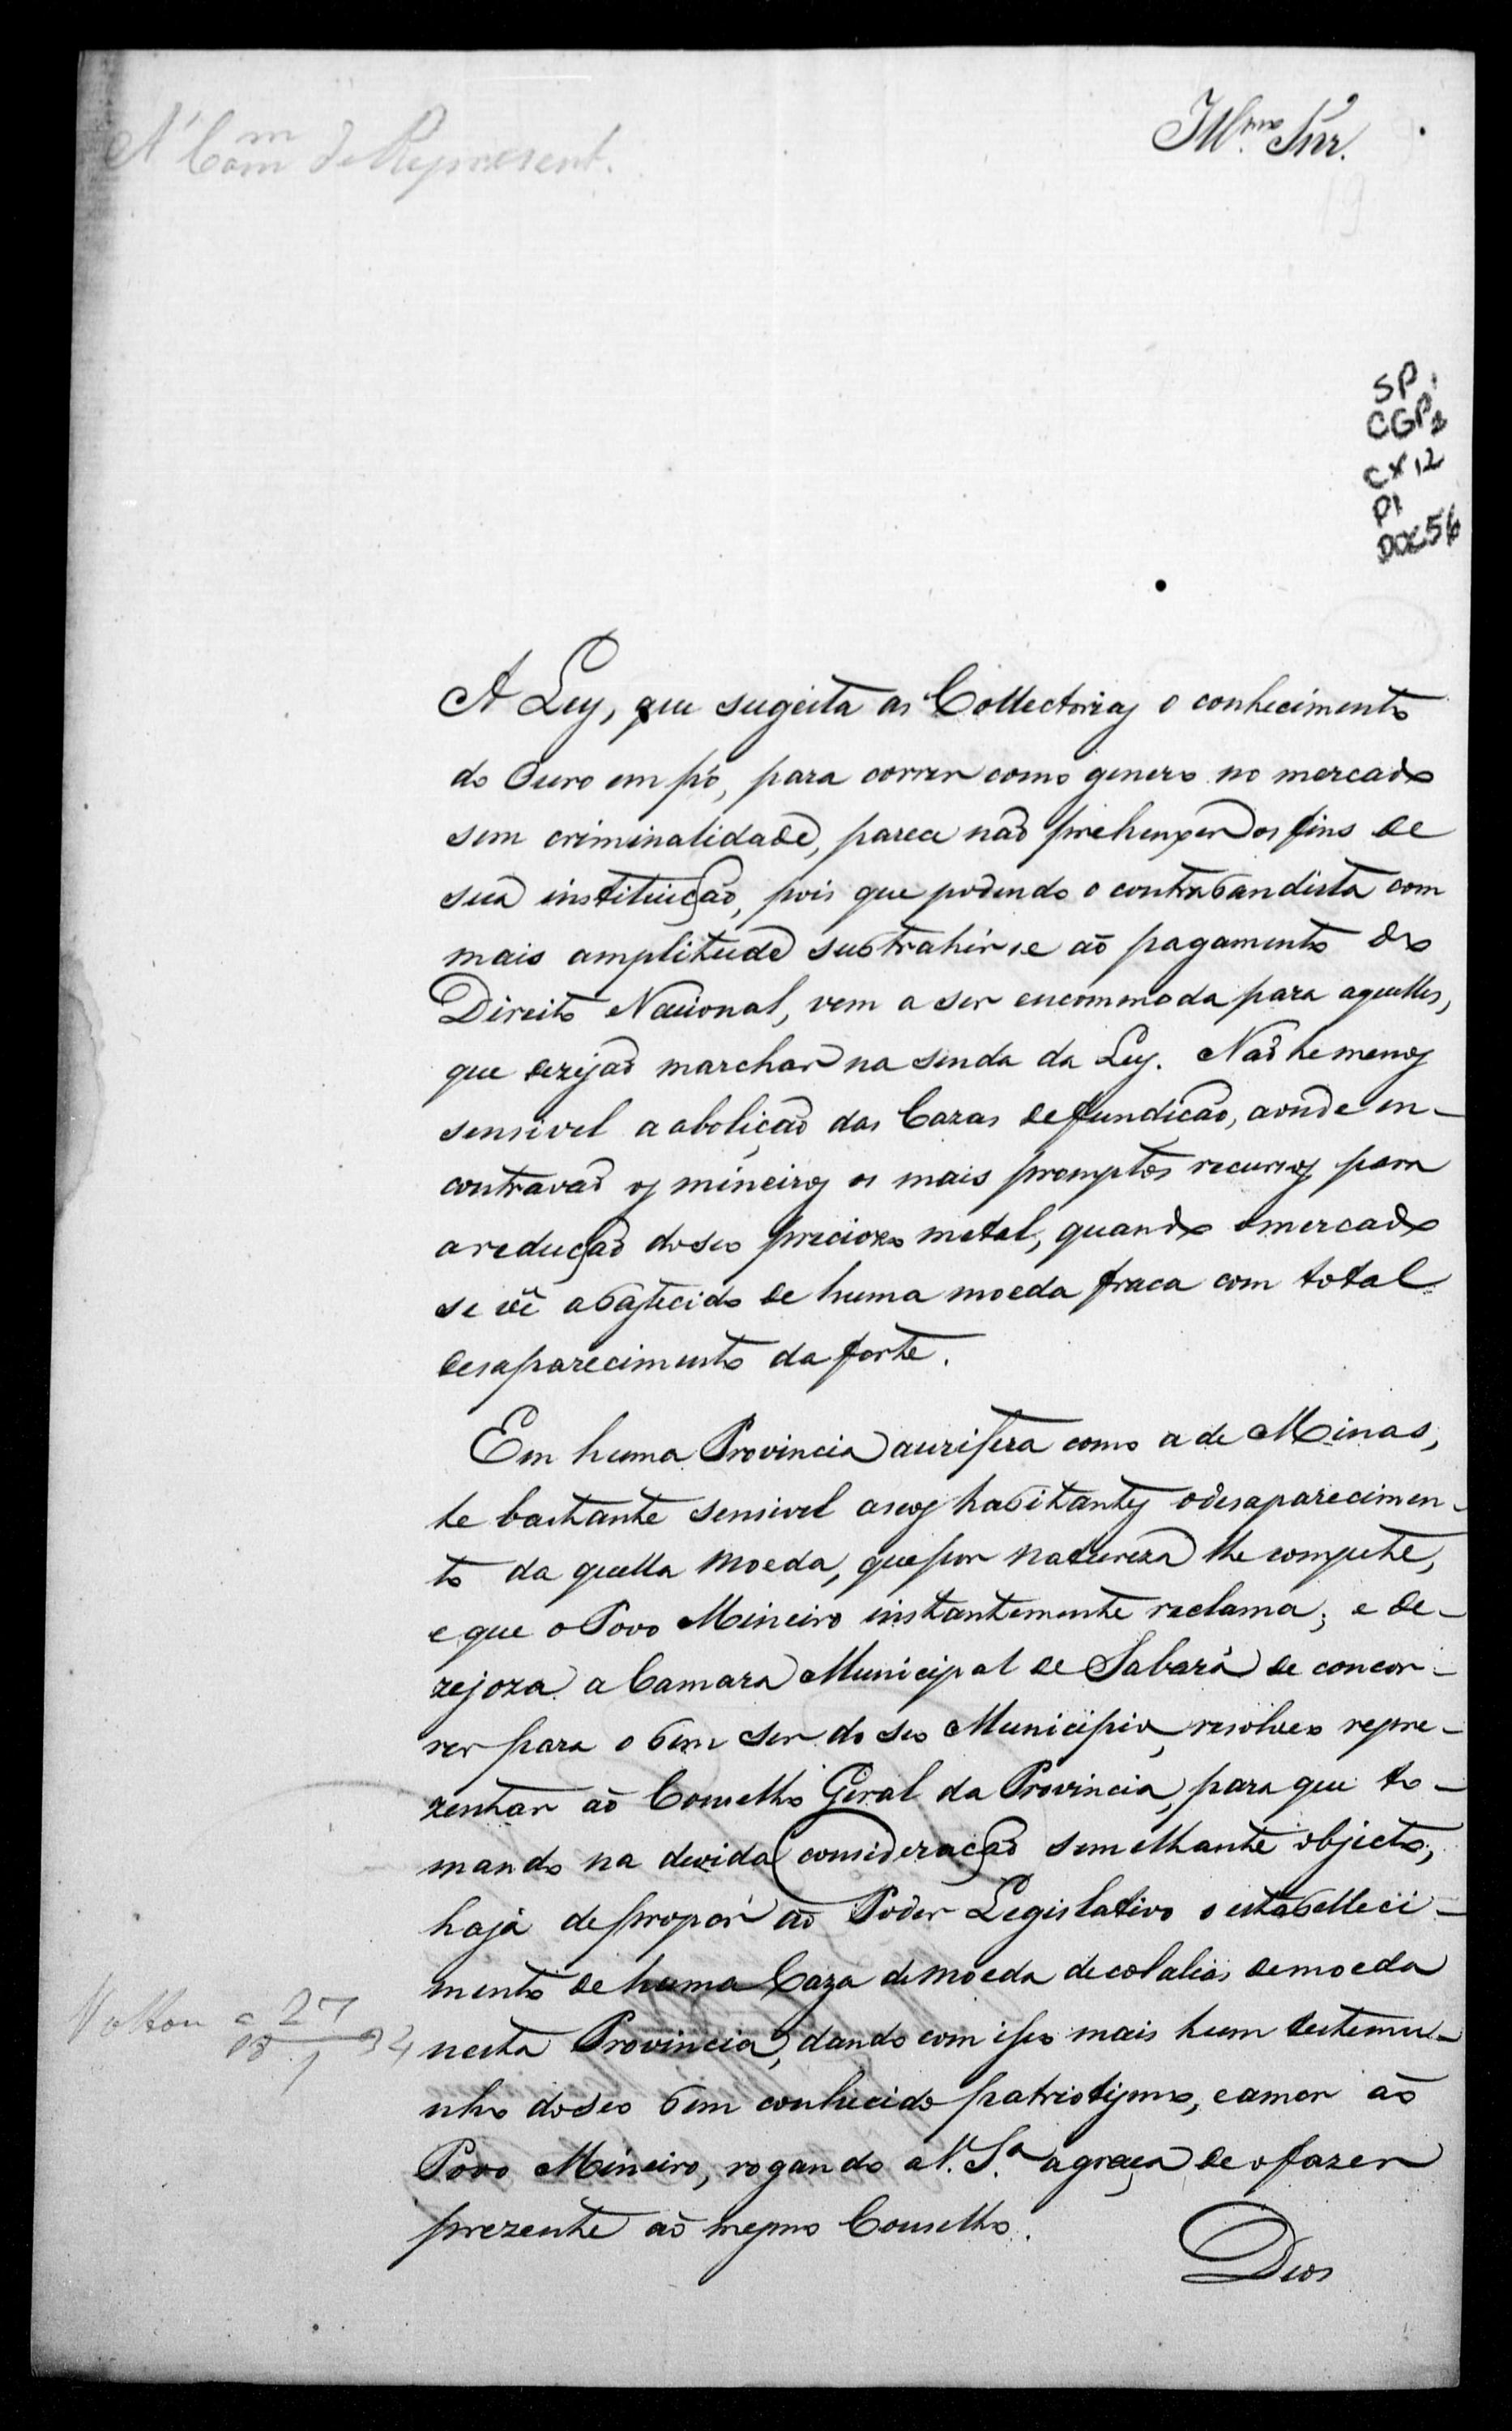 A' Com^m de Represent.
Ill^mo Snr.
19
SP,
CGP2
CX 12
P1
DOC 56
A Ley, que sugeita as Collectorias o conhecimento
do Ouro em pó, para correr como genero no mercado
sem criminalidade, parece naõ prehenxer os fins de
sua instituiçaõ, pois que podendo o contrabandista com
mais amplitude subtrahir se aõ pagamento do
Direito Nacional, vem a ser encommoda para aquelles,
que dezejaõ marchar na senda da Ley. Naõ he menos
sensivel a aboliçaõ das Cazas de fundiçaõ, aonde en-
contravaõ os mineiros os mais promptos recursos para
a reduçaõ do seo preciozo metal, quando o mercado
se vê abastecido de huma moeda fraca com total
desaparecimento da forte.
Em huma Provincia aurifera como a de Minas,
he bastante sensivel a seos habitantes o desaparecimen-
to da quella moeda, que por natureza lhe compete,
e que o Povo Mineiro instantemente reclama; e de-
zejoza a Camara Municipal de Sabará de concor-
rer para o bem ser do seo Municipio, resolveo repre-
zentar aõ Conselho Geral da Provincia, para que to-
mando na devida consideraçaõ semelhante objecto,
haja de propor aõ Poder Legislativo o estabelleci-
mento de huma Caza de moeda de moeda
nesta Provincia, dando com isso mais hum testemu-
nho do seo bem conhecido patriotismo, e amor aõ
Povo Mineiro, rogando a V. S.ª a graça de o fazer
prezente aõ mesmo Conselho.
Deos
Voltou a 27
1 34